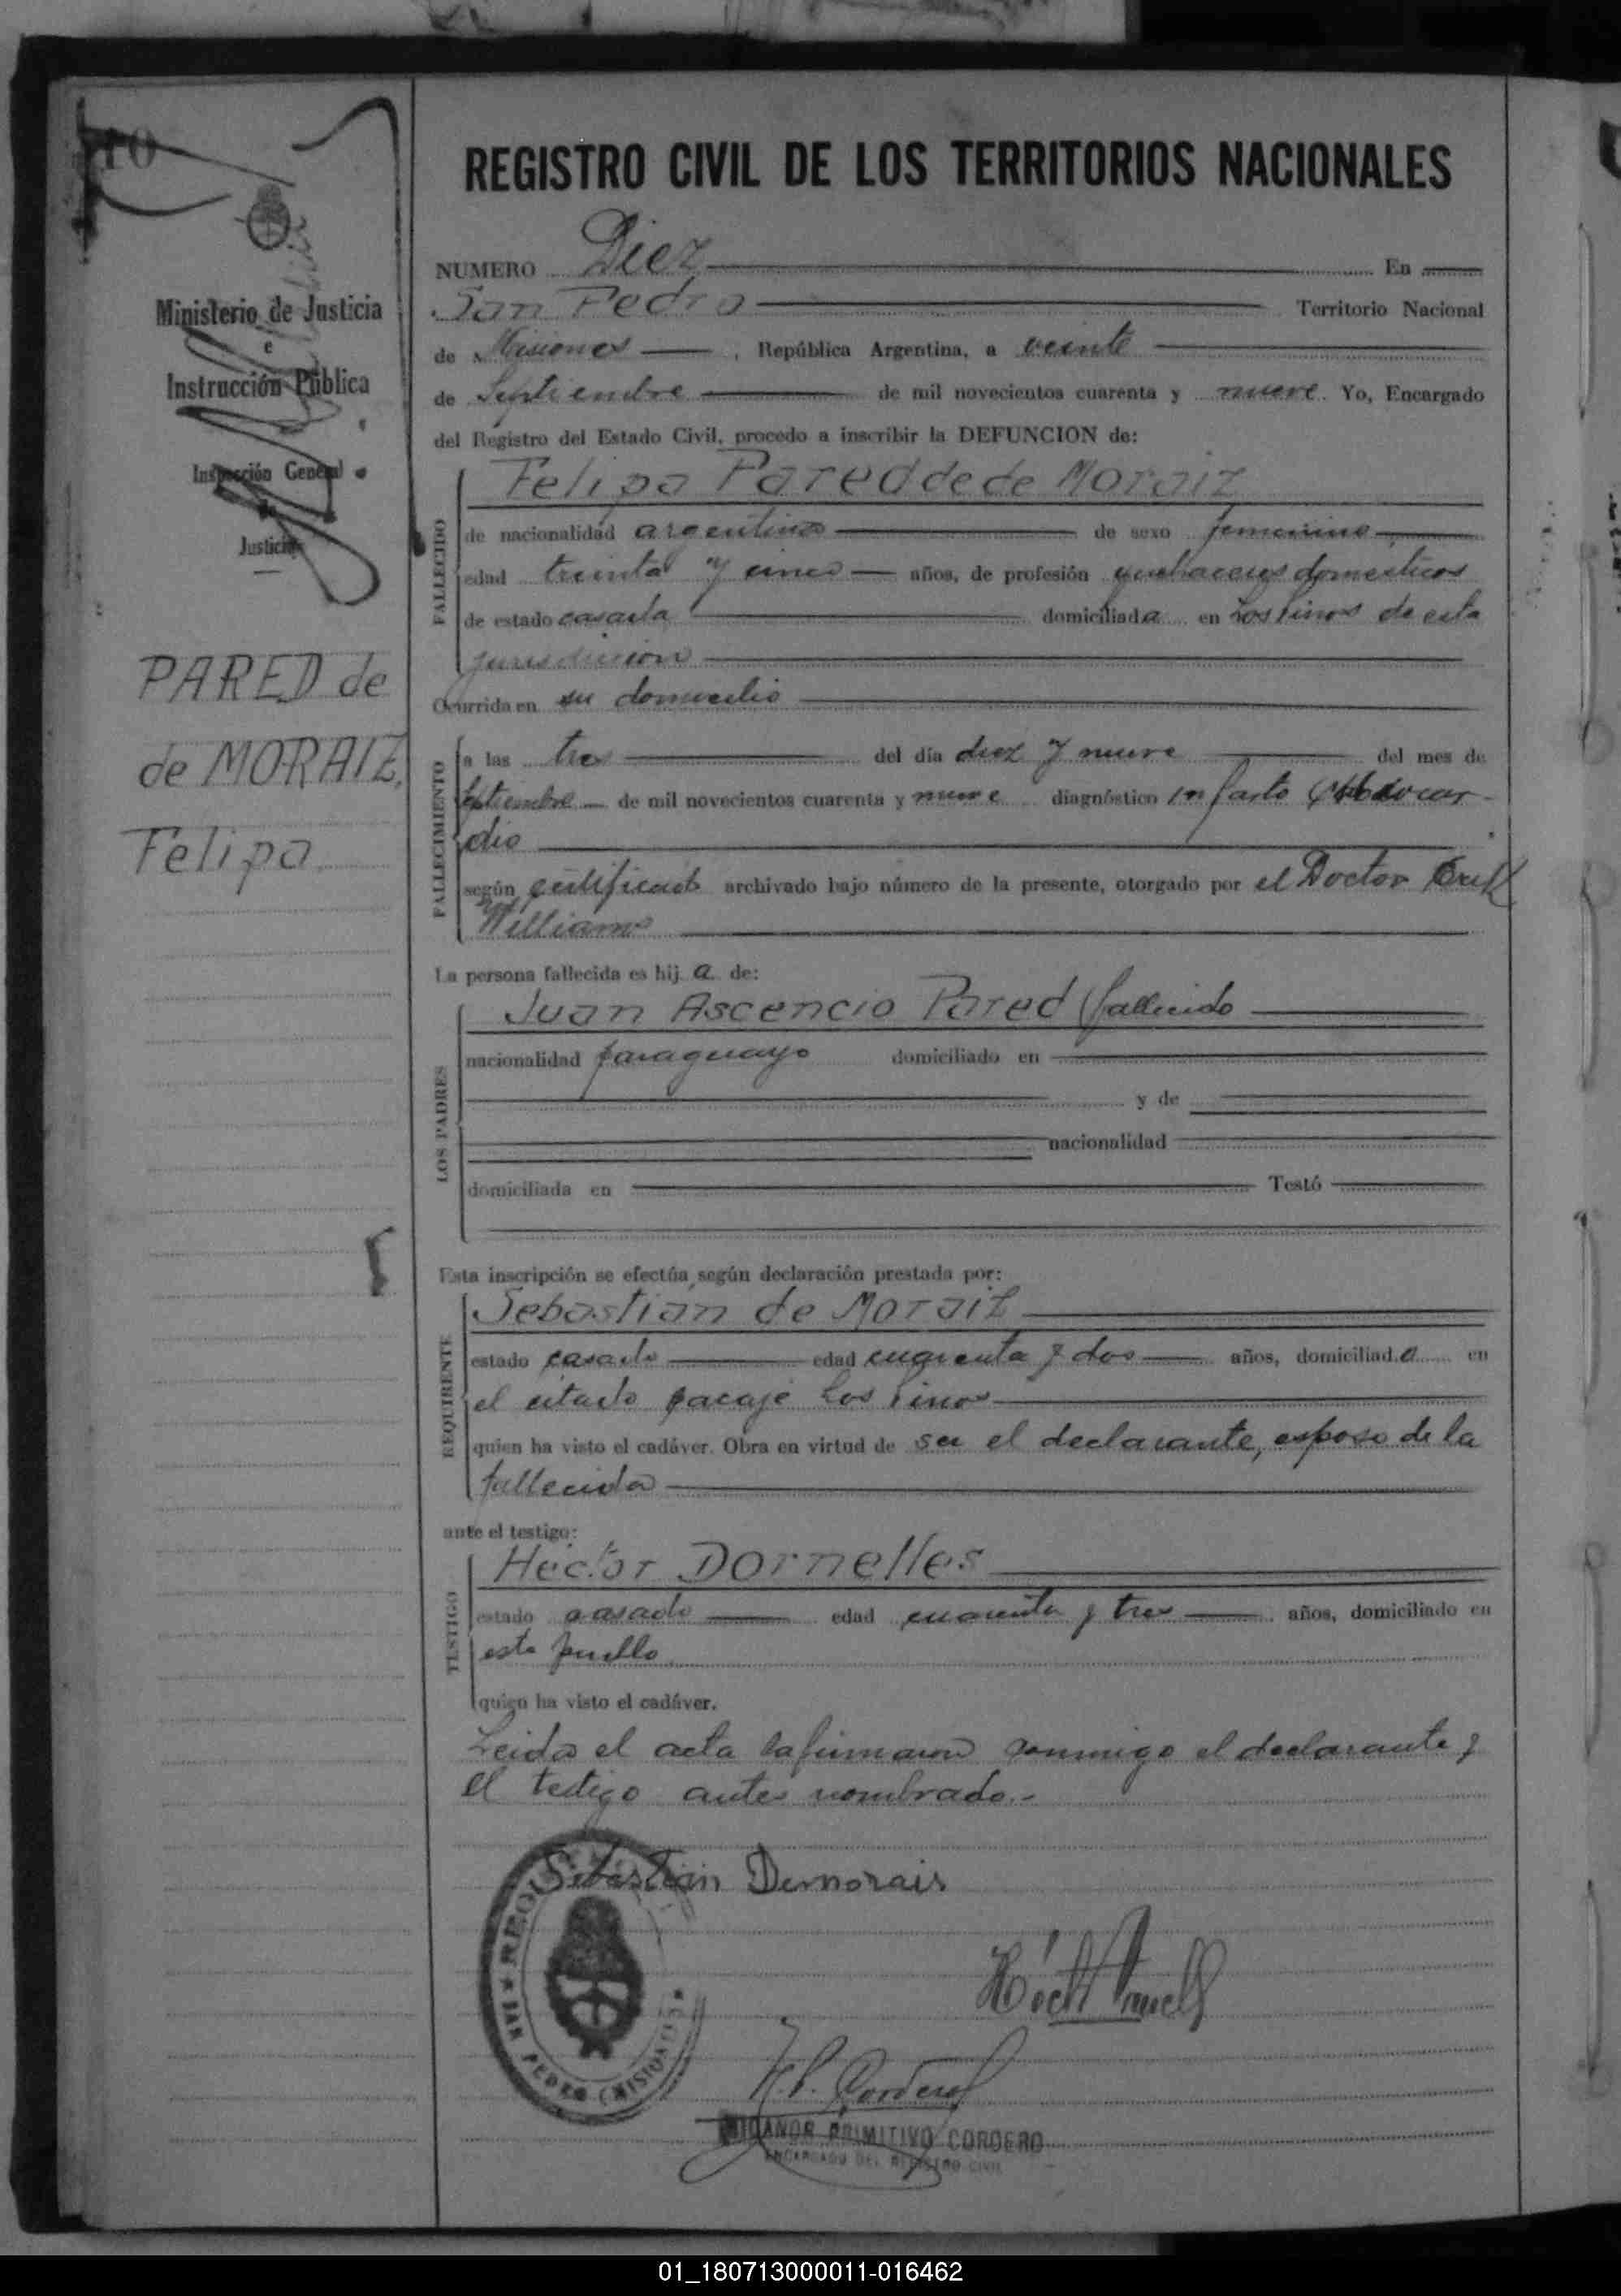 10
Ministerio de Justicia
e
Instrucción Pública
Inspección General
de
Justicia
PARED de
de MORAIZ,
Felipa
REGISTRO CIVIL DE LOS TERRITORIOS NACIONALES
NUMERO Diez En
San Pedro Territorio Nacional
de Misiones, República Argentina, a veinte
de Septiembre de mil novecientos cuarenta y nueve. Yo, Encargado
del Registro del Estado Civil, procedo a inscribir la DEFUNCION de:
FALLECIDO
Felipa Pared de de Moraiz
de nacionalidad argentina de sexo femenino
edad treinta y cinco años, de profesión quehaceres domesticos
de estado casada domiciliada en Los Pinos de esta
jurisdicion
Ocurrida en su domicilio
FALLECIMIENTO
a las tres del día diez y nueve del mes de
Septiembre de mil novecientos cuarenta y nueve diagnóstico infarto
dio
según certificado archivado bajo número de la presente, otorgado por el Doctor Erik
Williams
La persona fallecida es hija de:
LOS PADRES
Juan Ascencio Pared fallecido
nacionalidad paraguayo domiciliado en
y de
nacionalidad
domiciliada en Testó
Esta inscripción se efectúa según declaración prestada por:
REQUIRENTE
Sebastián de Moraiz
estado casado edad cuarenta y dos años, domiciliado en
el citado paraje Los Pinos
quien ha visto el cadáver. Obra en virtud de ser el declarante, esposo de la
fallecida
ante el testigo:
TESTIGO
Héctor Dornelles
estado casado edad cuarenta y tres años, domiciliado en
este pueblo
quien ha visto el cadáver.
Leida el acta la firmaron conmigo el declarante y
el testigo antes nombrado.-
Sebastián Demorais
SAN PEDRO (MISIONES)
H.P. Cordero
NICANOR PRIMITIVO CORDERO
ENCARGADO DEL REGISTRO CIVIL
01_180713000011-016462